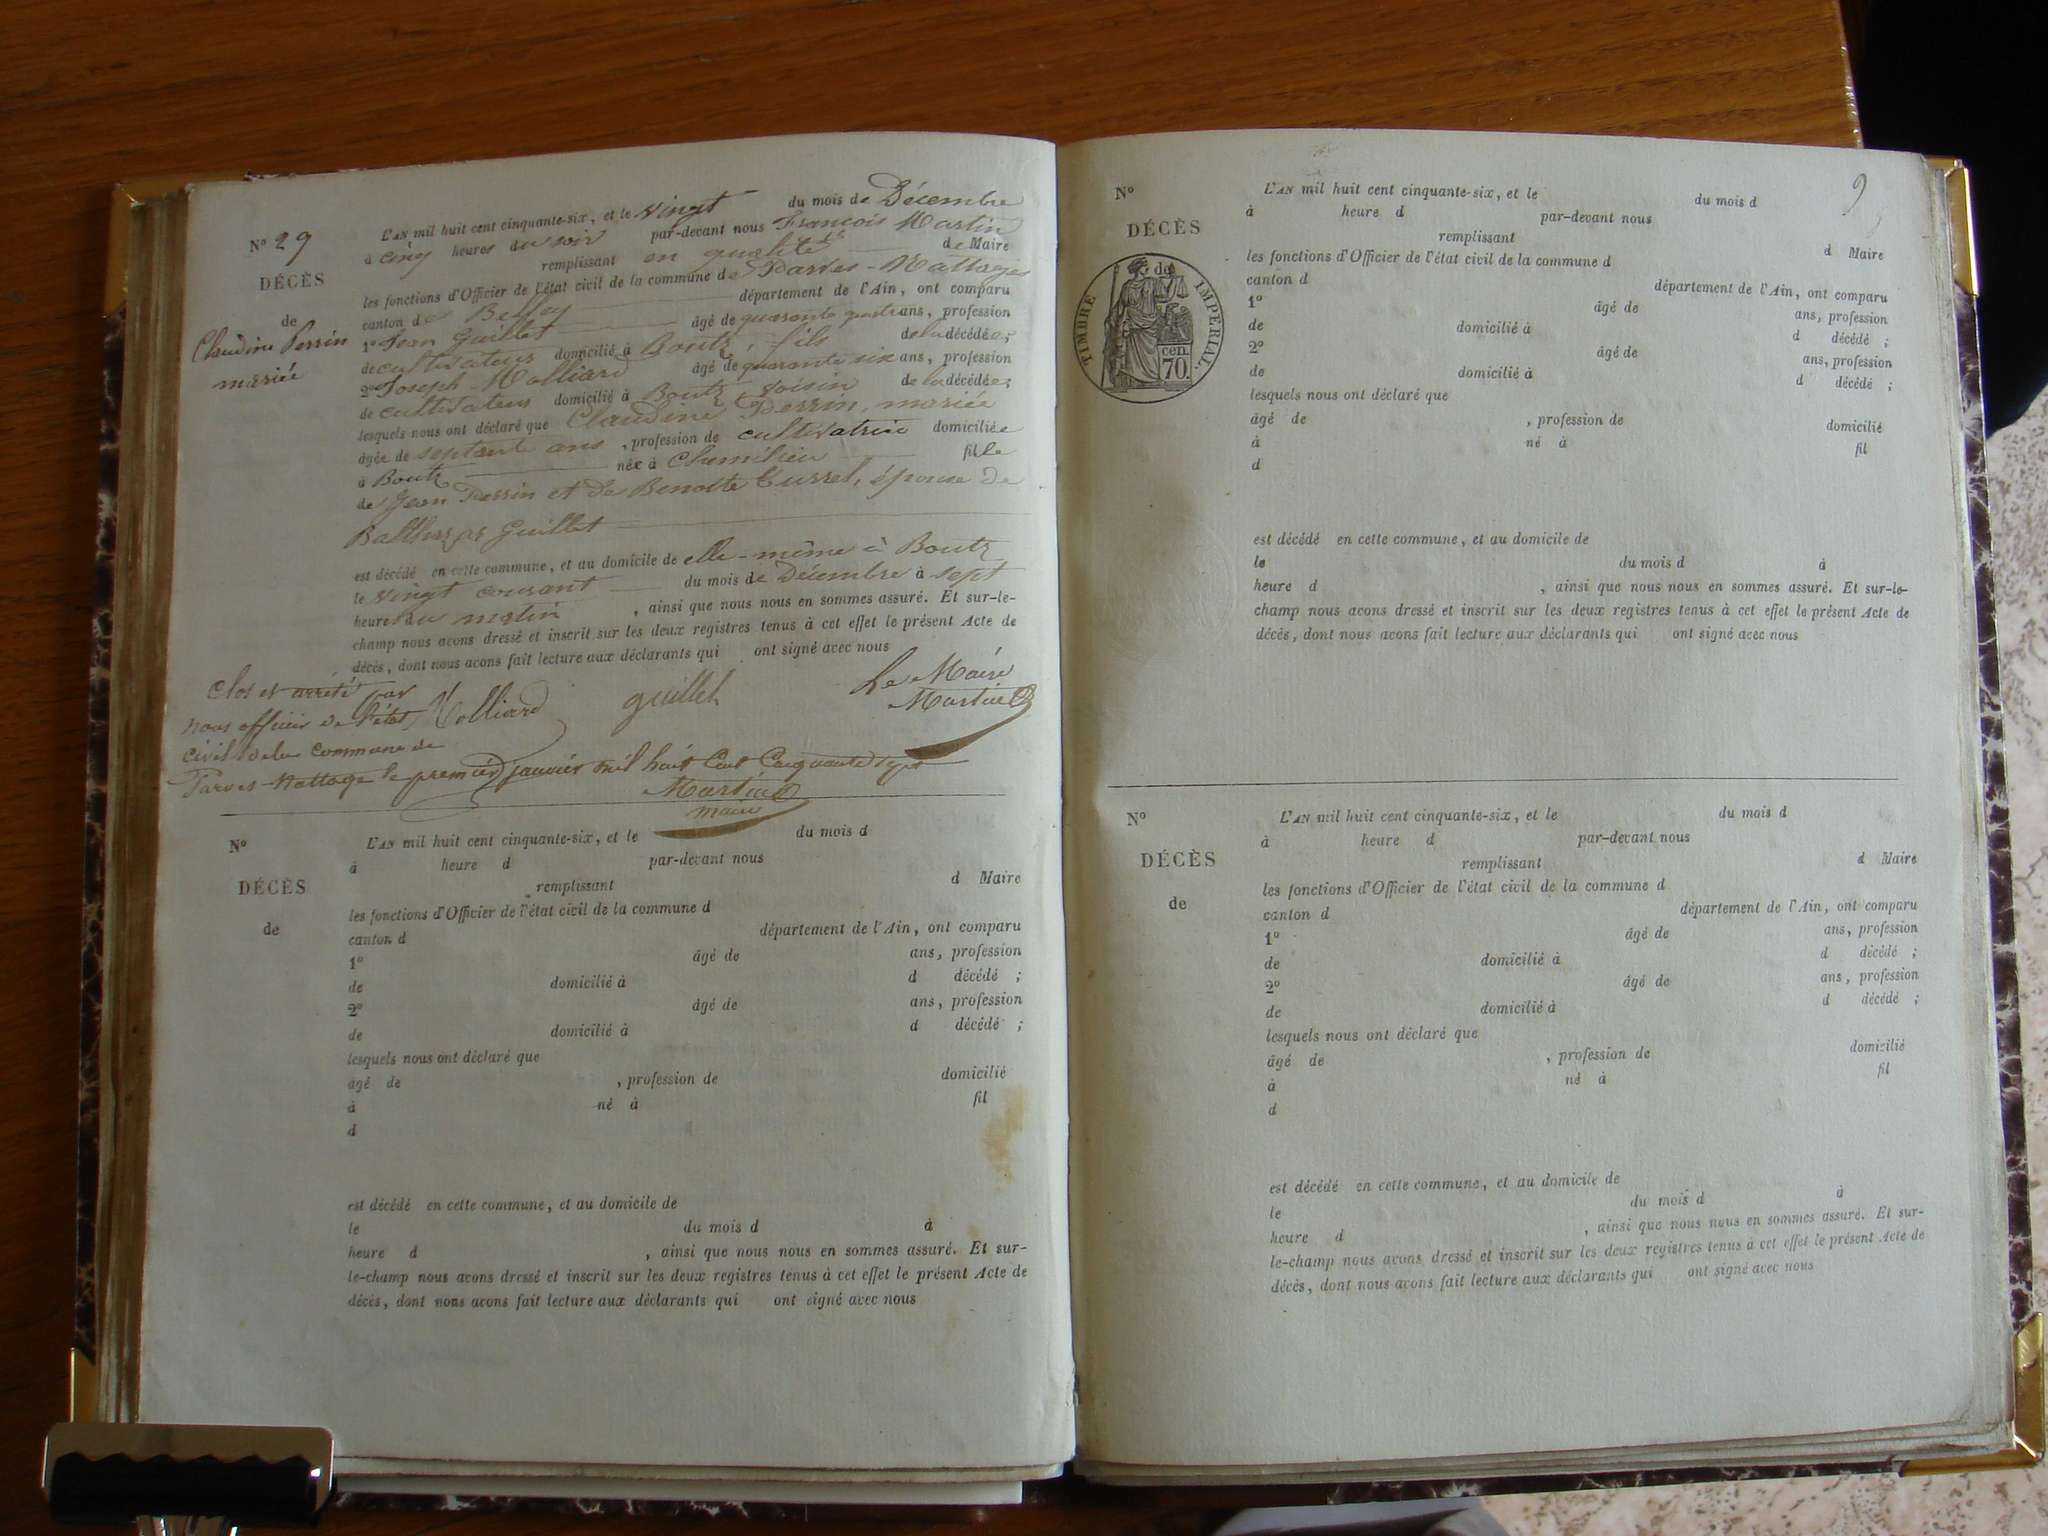 N° 29
DÉCÈS
de
Claudine Perrin
mariée
L'AN mil huit cent cinquante-six, et le vingt du mois de Décembre
à cinq heures du soir par-devant nous François Martin
remplissant en qualité de Maire
les fonctions d'Officier de l'état civil de la commune de Parves-Nattages
canton de Belley département de l'Ain, ont comparu
1° Jean Guillet âgé de quarante quatre ans, profession
de cultivateur domicilié à Boutz, fils de la décédée;
2° Joseph Molliard âgé de quarante six ans, profession
de cultivateur domicilié à Boutz voisin de la décédée;
lesquels nous ont déclaré que Claudine Perrin, mariée
âgée de septante ans, profession de cultivatrice domiciliée
à Boutz née à Chemilieu fille
de Jean Perrin et de Benoite Curret, épouse de
Balthazar Guillet
est décédé en cette commune, et au domicile de elle-même à Boutz
le vingt courant du mois de Décembre à sept
heures du matin, ainsi que nous nous en sommes assuré. Et sur-le-
champ nous avons dressé et inscrit sur les deux registres tenus à cet effet le présent Acte de
décès, dont nous avons fait lecture aux déclarants qui ont signé avec nous
Molliard guillet Le Maire
Martin
Clos et arrêté par
nous officier de l'état
civil de la commune de
Parves-Nattage le premier janvier mil huit Cent Cinquante sept
Martin
maire
N°
DÉCÈS
de
L'AN mil huit cent cinquante-six, et le du mois d
à heure d par-devant nous
remplissant d Maire
les fonctions d'Officier de l'état civil de la commune d
canton d département de l'Ain, ont comparu
1° âgé de ans, profession
de domicilié à d décédé ;
2° âgé de ans, profession
de domicilié à d décédé ;
lesquels nous ont déclaré que
âgé de , profession de domicilié
à né à fil
d
est décédé en cette commune, et au domicile de
le du mois d à
heure d , ainsi que nous nous en sommes assuré. Et sur-
le-champ nous avons dressé et inscrit sur les deux registres tenus à cet effet le présent Acte de
décès, dont nous avons fait lecture aux déclarants qui ont signé avec nous
9
N°
DÉCÈS
de
TIMBRE IMPÉRIAL
70 cen.
L'AN mil huit cent cinquante-six, et le du mois d
à heure d par-devant nous
remplissant d Maire
les fonctions d'Officier de l'état civil de la commune d
canton d département de l'Ain, ont comparu
1° âgé de ans, profession
de domicilié à d décédé ;
2° âgé de ans, profession
de domicilié à d décédé ;
lesquels nous ont déclaré que
âgé de , profession de domicilié
à né à fil
d
est décédé en cette commune, et au domicile de
le du mois d à
heure d , ainsi que nous nous en sommes assuré. Et sur-le-
champ nous avons dressé et inscrit sur les deux registres tenus à cet effet le présent Acte de
décès, dont nous avons fait lecture aux déclarants qui ont signé avec nous
N°
DÉCÈS
de
L'AN mil huit cent cinquante-six, et le du mois d
à heure d par-devant nous
remplissant d Maire
les fonctions d'Officier de l'état civil de la commune d
canton d département de l'Ain, ont comparu
1° âgé de ans, profession
de domicilié à d décédé ;
2° âgé de ans, profession
de domicilié à d décédé ;
lesquels nous ont déclaré que
âgé de , profession de domicilié
à né à fil
d
est décédé en cette commune, et au domicile de
le du mois d à
heure d , ainsi que nous nous en sommes assuré. Et sur-
le-champ nous avons dressé et inscrit sur les deux registres tenus à cet effet le présent Acte de
décès, dont nous avons fait lecture aux déclarants qui ont signé avec nous